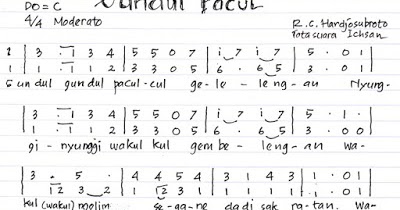 DO = C Gundul Pacul
4/4 Moderato R.C. Hardjosubroto
Tata suara Ichsan
1 | 3 . 1 3 4 | 5 5 0 7 | i 7 i 7 | 5 . 0 1 |
1 | 1 . 1 1 2 | 3 3 0 5 | 6 . 6 5 | 3 . 0 1 |
Gun dul gun dul pacul - cul ge - le - leng - an Nyung -
| 3 . 1 3 4 | 5 5 0 7 | i 7 i 7 | 5 . 0 1 |
| 1 . 1 1 2 | 3 3 0 5 | 6 . 6 5 | 3 . 0 1 |
gi - nyunggi wakul kul gembe - leng - an wa -
| 3 . 5 . | 4 4 5 4 | 3 1 4 3 | 1 . 0 1 |
| 1 . 12 3 2 | . 12 3 1 | 1 1 1 1 | 1 . 0 1 |
kul (wakul) ngglim se - ga - ne dadi sak ra - tan. Wa -